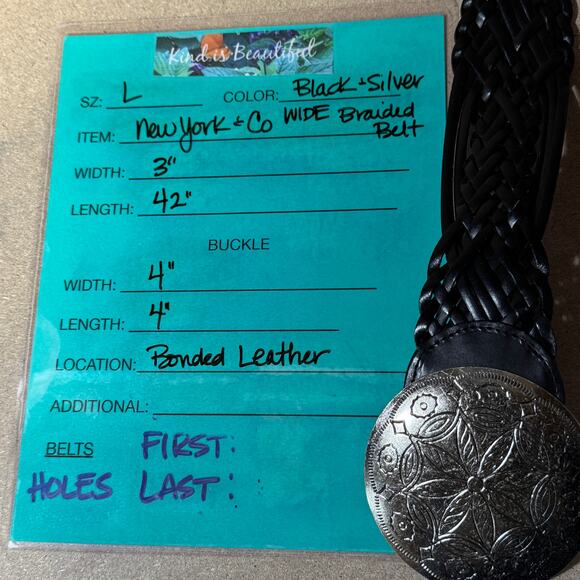 Kind is Beautiful
SZ: L COLOR: Black + Silver
ITEM: New York + Co WIDE Braided Belt
WIDTH: 3"
LENGTH: 42"
BUCKLE
WIDTH: 4"
LENGTH: 4"
LOCATION: Bonded Leather
ADDITIONAL:
BELTS FIRST:
HOLES LAST: